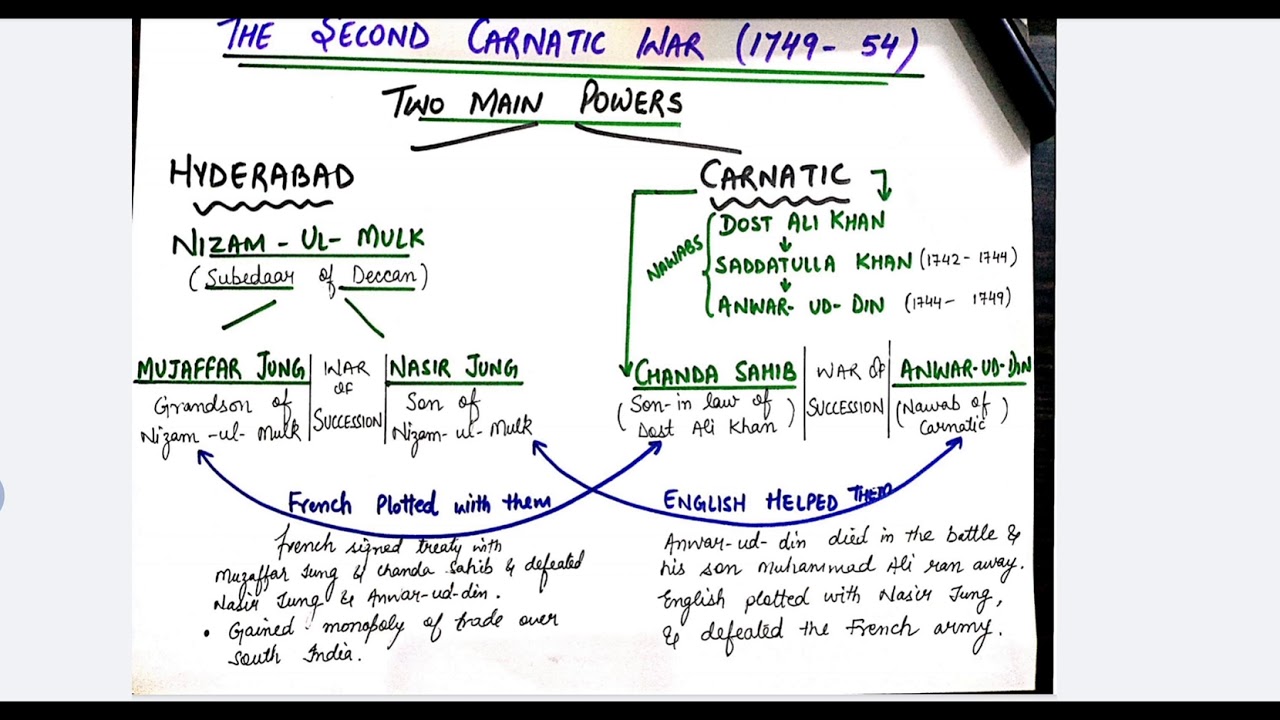 THE SECOND CARNATIC WAR (1749- 54)
TWO MAIN POWERS
HYDERABAD
NIZAM - UL- MULK
(Subedaar of Deccan)
MUJAFFAR JUNG
Grandson of
Nizam -ul- Mulk
WAR
OF
SUCCESSION
NASIR JUNG
Son of
Nizam- ul- Mulk
CARNATIC
NAWABS
DOST ALI KHAN
SADDATULLA KHAN (1742- 1744)
ANWAR- UD- DIN (1744- 1749)
CHANDA SAHIB
(Son- in law of
Dost Ali Khan)
WAR OF
SUCCESSION
ANWAR-UD-DIN
(Nawab of
Carnatic)
French Plotted with them
French signed treaty with
Muzaffar Jung & Chanda Sahib & defeated
Nasir Jung & Anwar-ud-din.
• Gained monopoly of trade over
South India.
ENGLISH HELPED THEM
Anwar-ud- din died in the battle &
his son Muhammad Ali ran away.
English plotted with Nasir Jung,
& defeated the French army.